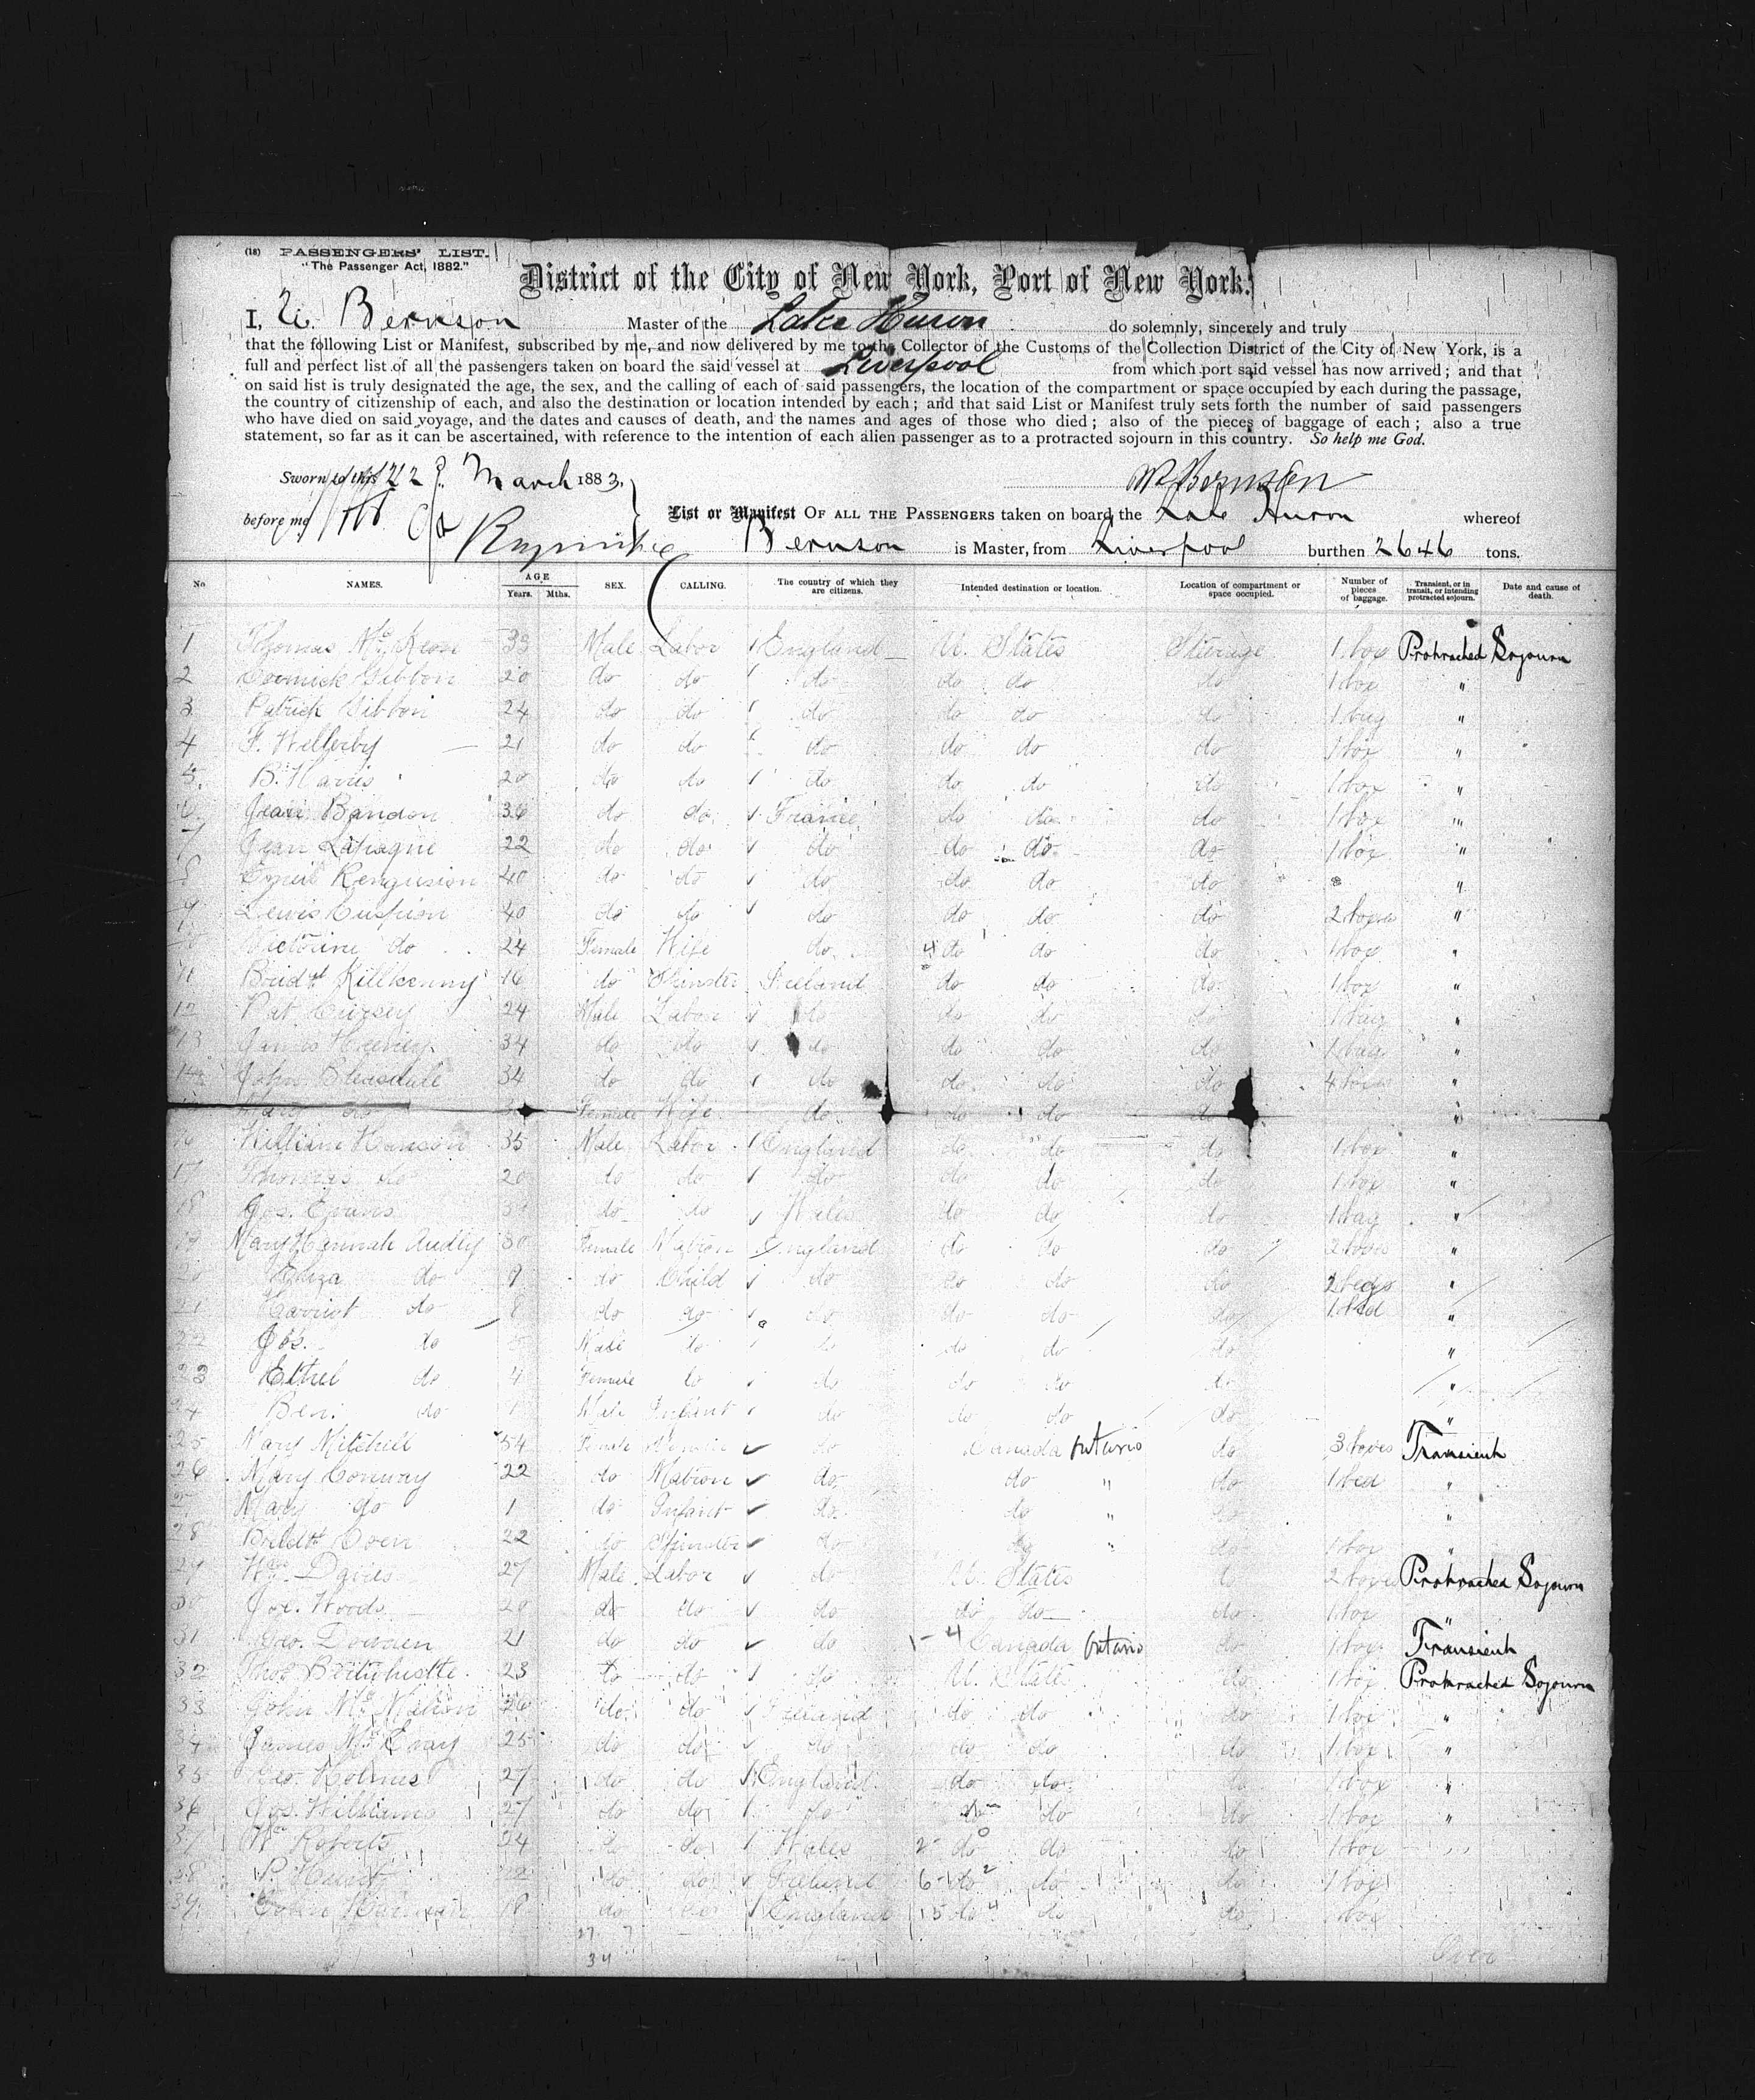 (18) PASSENGERS' LIST.
"The Passenger Act, 1882."
District of the City of New York, Port of New York.
I, W. Bernson Master of the Lake Huron do solemnly, sincerely and truly
that the following List or Manifest, subscribed by me, and now delivered by me to the Collector of the Customs of the Collection District of the City of New York, is a
full and perfect list of all the passengers taken on board the said vessel at Liverpool from which port said vessel has now arrived; and that
on said list is truly designated the age, the sex, and the calling of each of said passengers, the location of the compartment or space occupied by each during the passage,
the country of citizenship of each, and also the destination or location intended by each; and that said List or Manifest truly sets forth the number of said passengers
who have died on said voyage, and the dates and causes of death, and the names and ages of those who died; also of the pieces of baggage of each; also a true
statement, so far as it can be ascertained, with reference to the intention of each alien passenger as to a protracted sojourn in this country. So help me God.
Sworn to this 22 March 1883,
W Bernson
before me
List or Manifest OF ALL THE PASSENGERS taken on board the Lake Huron whereof
Bernson is Master, from Liverpool burthen 2646 tons.
No NAMES. AGE Years. Mths. SEX. CALLING. The country of which they are citizens. Intended destination or location. Location of compartment or space occupied. Number of pieces of baggage. Transient, or in transit, or intending protracted sojourn. Date and cause of death.
1 Thomas Mc Keon 33 Male Labor England U. States Steerage 1 box Protracted Sojourn
2 Gibbon 20 do do do do do do 1 box "
3 Patrick Gibbon 24 do do do do do do 1 bag "
4 F. Wellerby 21 do do do do do do 1 box "
5 B. Harris 20 do do do do do do 1 box "
6 Jean Bandon 36 do do France do do do 1 box "
7 Jean 22 do do do do do do 1 box "
8 40 do do do do do do "
9 Lewis 40 do do do do do do 2 boxes "
10 Victorine do 24 Female Wife do 4 do do do 1 box "
11 Bridgt Killkenny 16 do Spinster Ireland do do do 1 box "
12 Pat 24 Male Labor do do do do 1 bag "
13 James 34 do do do do do do 1 bag "
14 John Bleasdale 34 do do do do do do 4 boxes "
Mary do Female Wife do do do do "
16 William Hanson 35 Male Labor England do do do 1 box "
17 Thomas do 20 do do do do do do 1 box "
18 Jos. Evans do do Wales do do do 1 bag "
19 Mary Hannah Audly 30 Female Matron England do do do 2 boxes "
20 Eliza do 9 do Child do do do do 2 bags "
21 Harriot do 8 do do do do do do 1 bed "
22 Jos. do Male do do do do do "
23 Ethel do 4 Female do do do do do "
24 Ben. do 1 Male Infant do do do do "
25 Mary Mitchell 54 Female do Canada Ontario do 3 boxes Transient
26 Mary Conway 22 do Matron do do " do 1 bed "
27 Mary do 1 do Infant do do " do "
28 Bridgt Coen 22 do Spinster do do " do 1 box "
29 Wm. Davies 27 Male Labor do U. States do 2 boxes Protracted Sojourn
30 Joe. Woods 20 do do do do do do 1 box "
31 Geo. Dowden 21 do do do 1-4 Canada Ontario do 1 box Transient
32 Thos 23 do do do U. States do 1 box Protracted Sojourn
33 John Mc Mahon 26 do do Ireland do do do 1 box "
34 James Mc Evay 25 do do do do do do 1 box "
35 Geo. Holmes 27 do do England do do do 1 box "
36 Jos. Williams 27 do do do do do do 1 box "
37 Wm Roberts 24 do do Wales 2 do do do 1 box "
38 P. Hunt 22 do do Ireland 6 do 2 do do 1 box
39 John 18 do do England 15 do 4 do do 1 box
27 7
34
Over